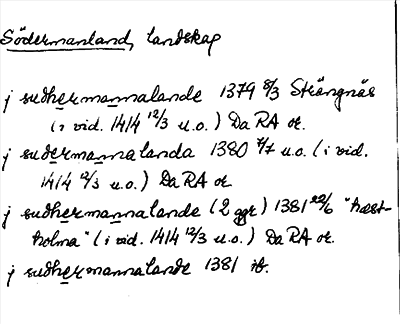 Södermanland, landskap
j sudhermannalande 1379 8/3 Strängnäs
(i vid. 1414 12/3 u.o.) Da RA or.
j sudermanalanda 1380 7/7 u.o. (i vid.
1414 12/3 u.o.) Da RA or
j sudhermannalande (2 ggr) 1381 22/6 "hæst-
holma" (i vid. 1414 12/3 u.o.) Da RA or.
j sudhermannalande 1381 ib.